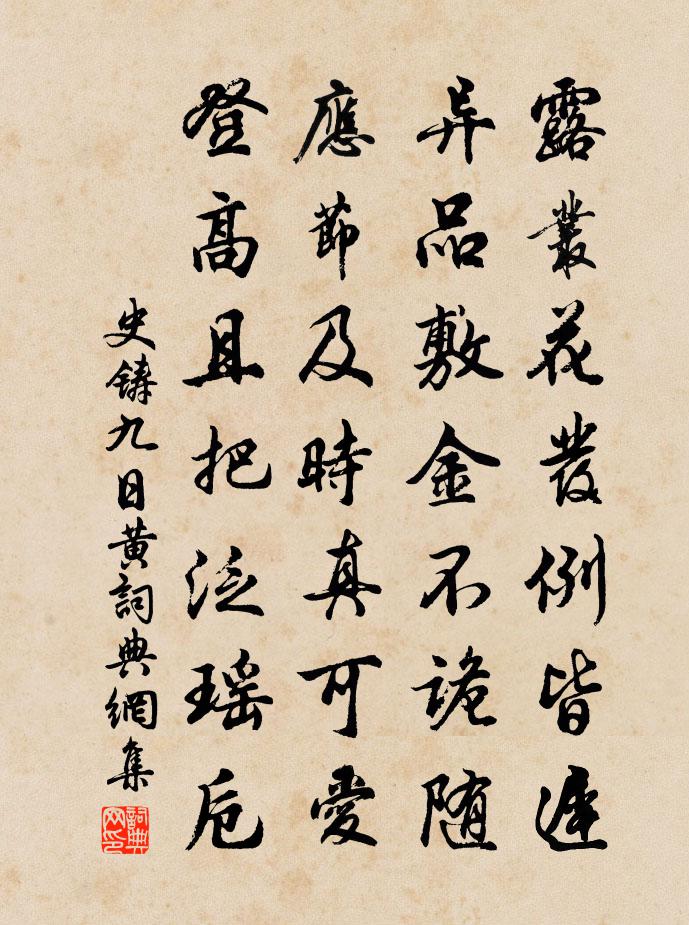 露叢花發例皆遲
异品敷金不詭随
應節及時真可愛
登高且把泛瑶卮
史鑄九日黄詞典網集
詞典网印